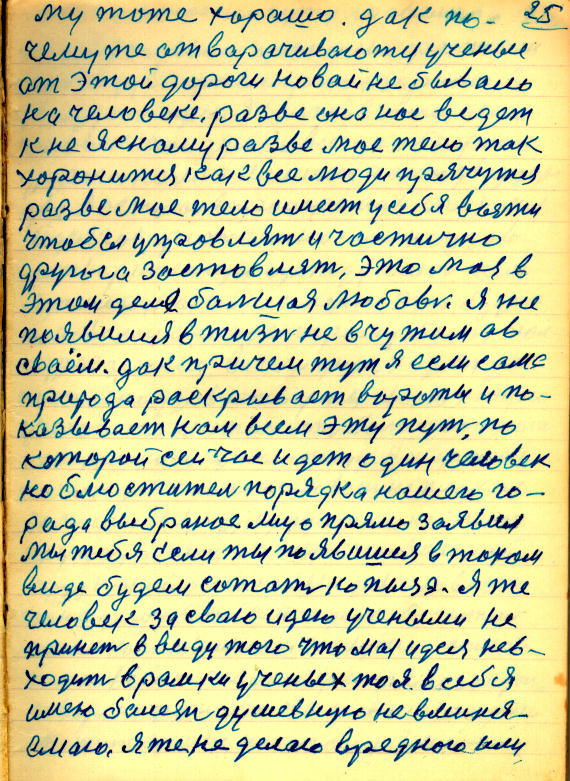 му тоже хорошо. дак по- 25
чемуже отварачиваютти ученые
от этой дороги новай не бывало
на человеке. разве она нас ведет
к не ясному разве мое тело так
хоронится как все люди прячутся
разве мое тело имеет у себя
чтобы упровлят и частично
другога застовлят, это мая в
этом деле балшая любов. я же
появился в жизн не в чужим ав
сваём. дак причем тут я если сама
природа раскрывает вароты и по-
казывает нам всем эту пут, по
которой сейчас идет один человек
но блюстител порядка нашего го-
рада прямо заявил
мы тебя если ты появишся в таком
виде будем сотат . Я же
человек за сваю идею учеными не
принет в виду того что мая идея нев-
ходит в рамки ученых то я в себя
имею балезн душевную
. Я же не делаю вредного или